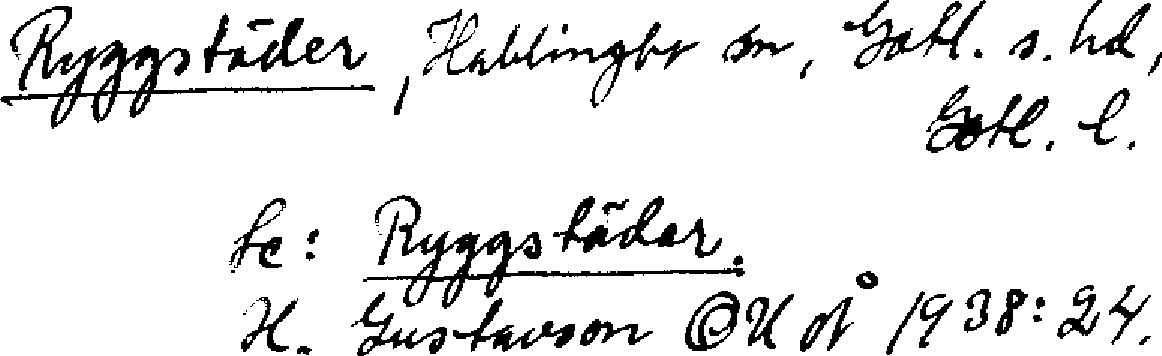 Ryggstäder, Hablingbo sn, Gotl. s. hd,
Gotl. l.
Se: Ryggstädar.
H. Gustavson OUoÅ 1938:24.